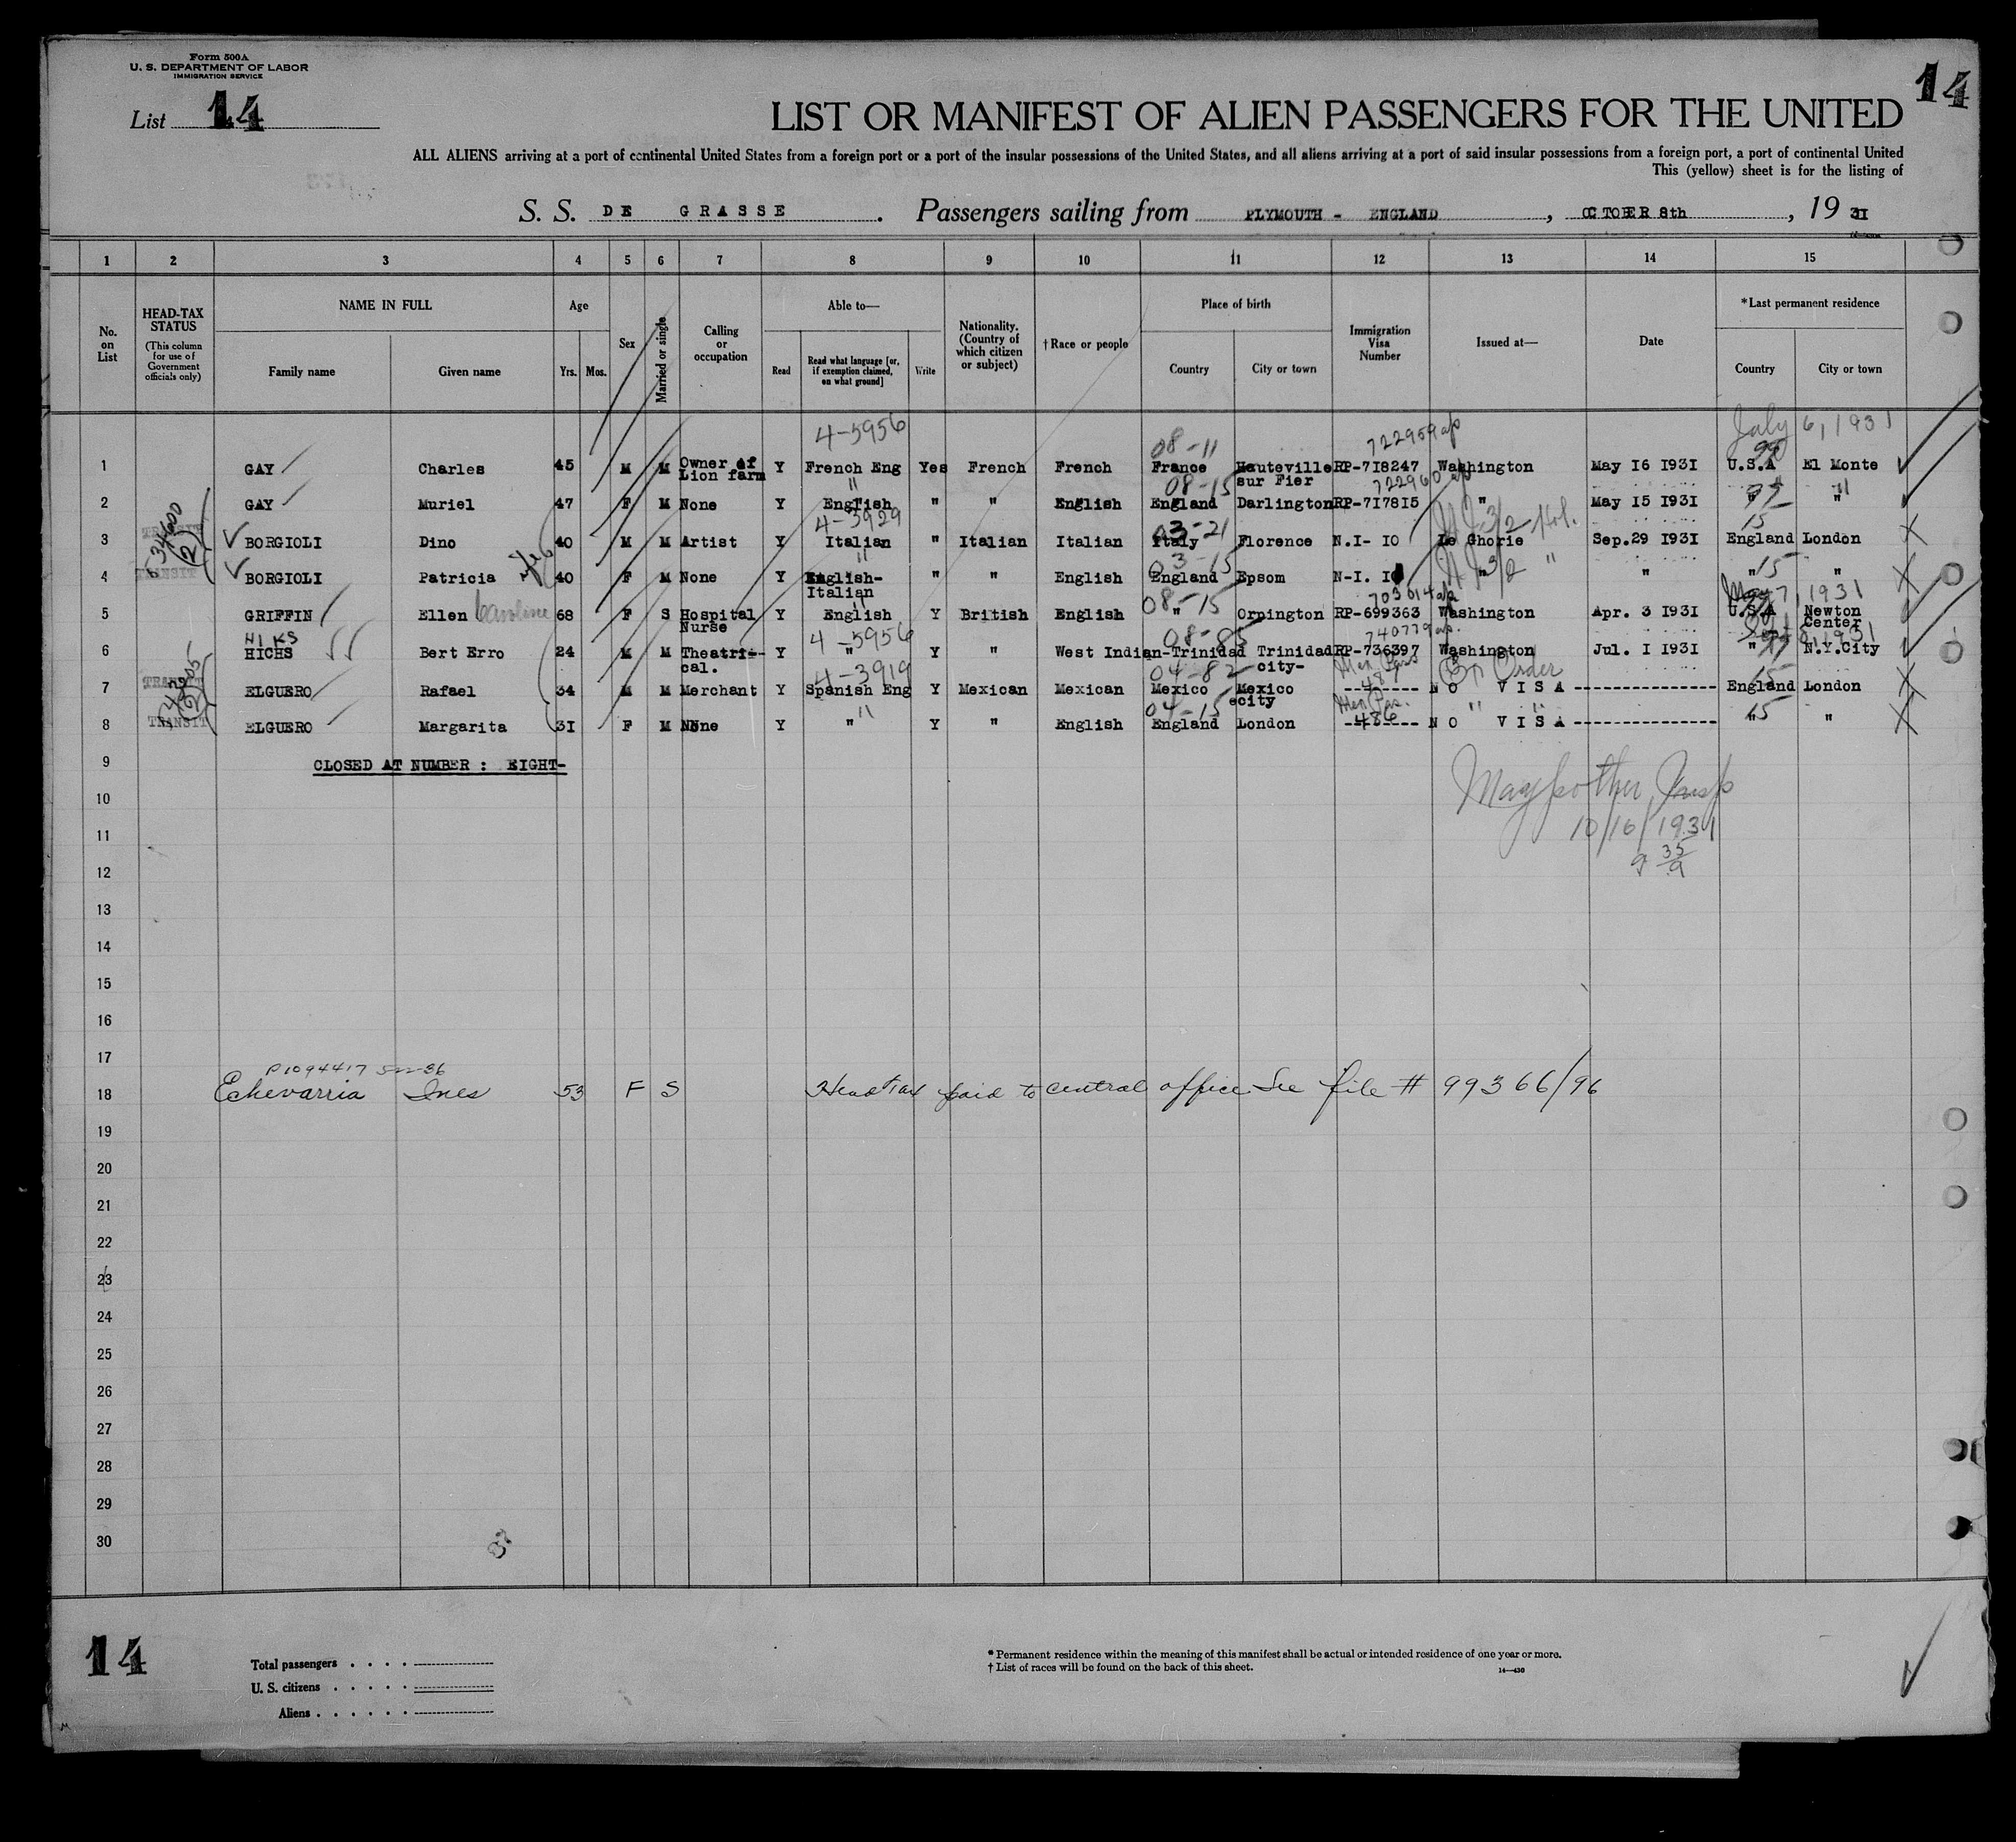 Form 500A
U. S. DEPARTMENT OF LABOR
IMMIGRATION SERVICE
List 14
14
LIST OR MANIFEST OF ALIEN PASSENGERS FOR THE UNITED
ALL ALIENS arriving at a port of continental United States from a foreign port or a port of the insular possessions of the United States, and all aliens arriving at a port of said insular possessions from a foreign port, a port of continental United
This (yellow) sheet is for the listing of
S. S. DE GRASSE. Passengers sailing from PLYMOUTH - ENGLAND, OCTOBER 8th, 19 31
1 2 3 4 5 6 7 8 9 10 11 12 13 14 15
No. on List
HEAD-TAX STATUS
(This column for use of Government officials only)
NAME IN FULL
Family name Given name
Age
Yrs. Mos.
Sex
Married or single
Calling or occupation
Able to—
Read
Read what language [or, if exemption claimed, on what ground]
Write
Nationality. (Country of which citizen or subject)
† Race or people
Place of birth
Country City or town
Immigration Visa Number
Issued at—
Date
*Last permanent residence
Country City or town
4-5956 08-11 722959 July 6, 1931
1 GAY Charles 45 M M Owner of Lion farm Y French Eng Yes French French France Hauteville sur Fier RP-718247 Washington May 16 1931 U.S.A El Monte
" 08-15 722960
2 GAY Muriel 47 F M None Y English " " English England Darlington RP-717815 " May 15 1931 " "
4-3929 03-21 3/2 15
3 TRANSIT BORGIOLI Dino 40 M M Artist Y Italian " Italian Italian Italy Florence N.I- 10 Le Ghorie Sep.29 1931 England London
" 03-15 3/2 " 15
4 TRANSIT BORGIOLI Patricia 40 F M None Y English-Italian " " English England Epsom N-I. 10 " " " "
08-15 703014 May 7, 1931
5 GRIFFIN Ellen Caroline 68 F S Hospital Nurse Y English Y British English " Orpington RP-699363 Washington Apr. 3 1931 U.S.A Newton Center
HIKS 4-5956 08-85 740779 1931
6 HICHS Bert Erro 24 M M Theatri--cal. Y " Y " West Indian-Trinidad Trinidad city- RP-736397 Washington Jul. 1 1931 " N.Y.City
4-3919 04-82 487 Order 15
7 TRANSIT ELGUERO Rafael 34 M M Merchant Y Spanish Eng Y Mexican Mexican Mexico Mexico city -------- NO VISA ---------------- England London
" 04-15 486 " " 15
8 TRANSIT ELGUERO Margarita 31 F M None Y " Y " English England London -------- NO VISA ---------------- " "
9 CLOSED AT NUMBER : EIGHT-
10
11 10/16/1931
12 9 35/a
13
14
15
16
17
P1094417
18 Echevarria Ines 53 F S Head tax paid to central office See file # 99366/96
19
20
21
22
23
24
25
26
27
28
29
30
14
Total passengers . . . .
U. S. citizens . . . . .
Aliens . . . . . .
* Permanent residence within the meaning of this manifest shall be actual or intended residence of one year or more.
† List of races will be found on the back of this sheet.
14—430